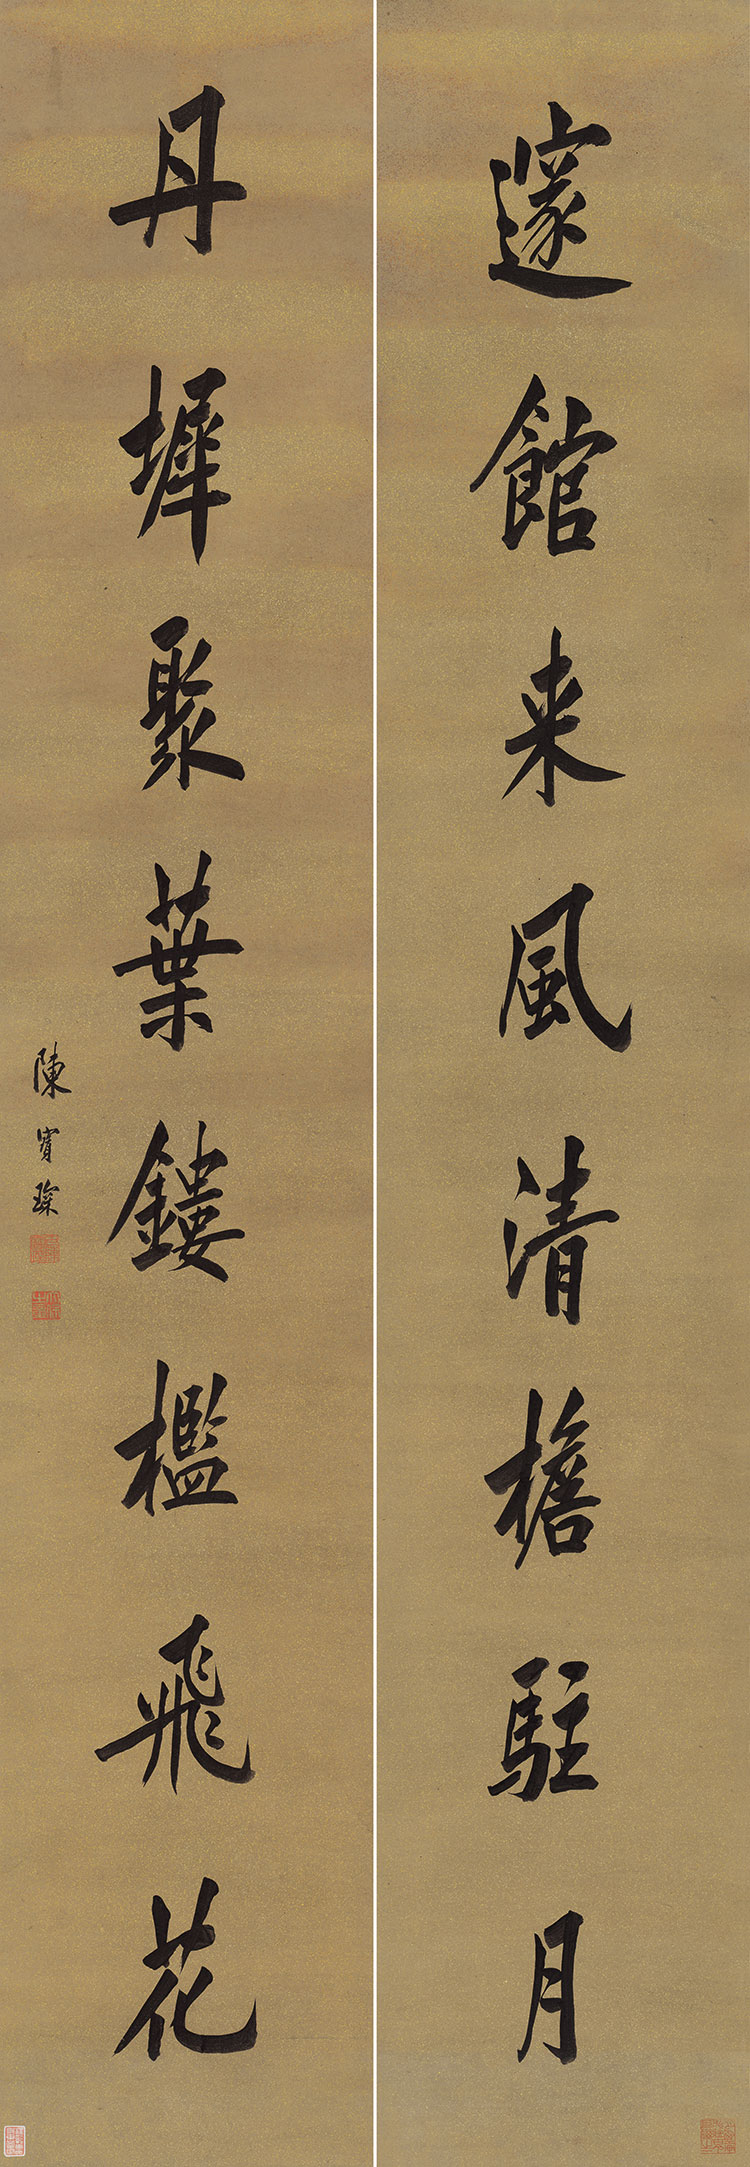 邃館来風清檐駐月
丹墀聚葉鏤檻飛花
陳寶琛